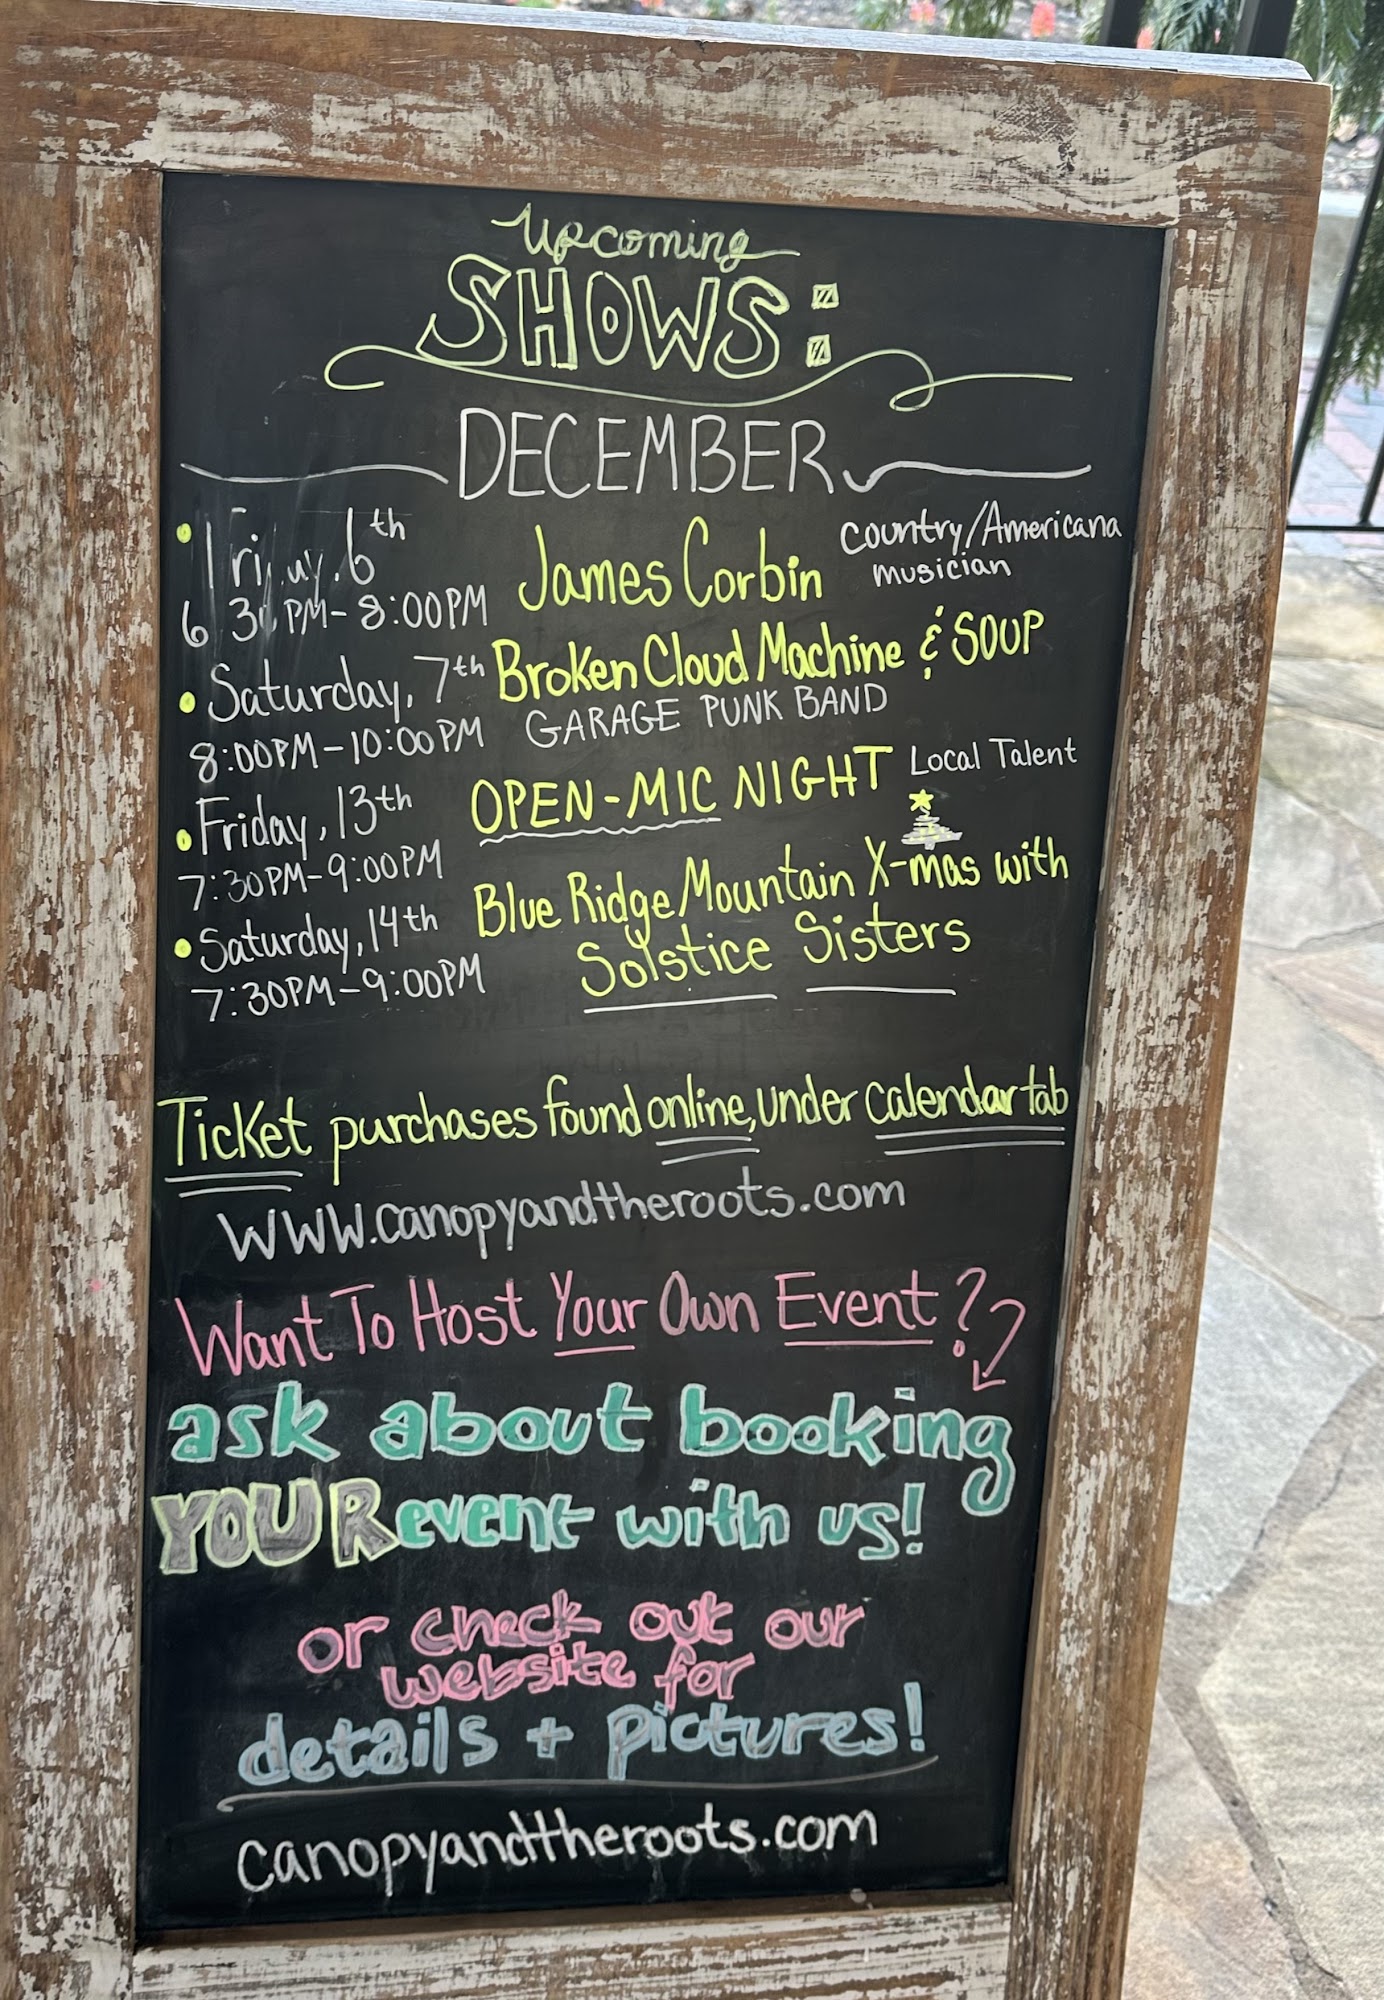 Upcoming
SHOWS:
DECEMBER
• Friday, 6th James Corbin Country/Americana musician
6:30PM-8:00PM
• Saturday, 7th Broken Cloud Machine & SOUP
8:00PM-10:00PM GARAGE PUNK BAND
• Friday, 13th OPEN-MIC NIGHT Local Talent
7:30PM-9:00PM
• Saturday, 14th Blue Ridge Mountain X-mas with
7:30PM-9:00PM Solstice Sisters
Ticket purchases found online, under calendar tab
WWW.canopyandtheroots.com
Want To Host Your Own Event?
ask about booking
YOUR event with us!
or check out our
website for
details + pictures!
canopyandtheroots.com